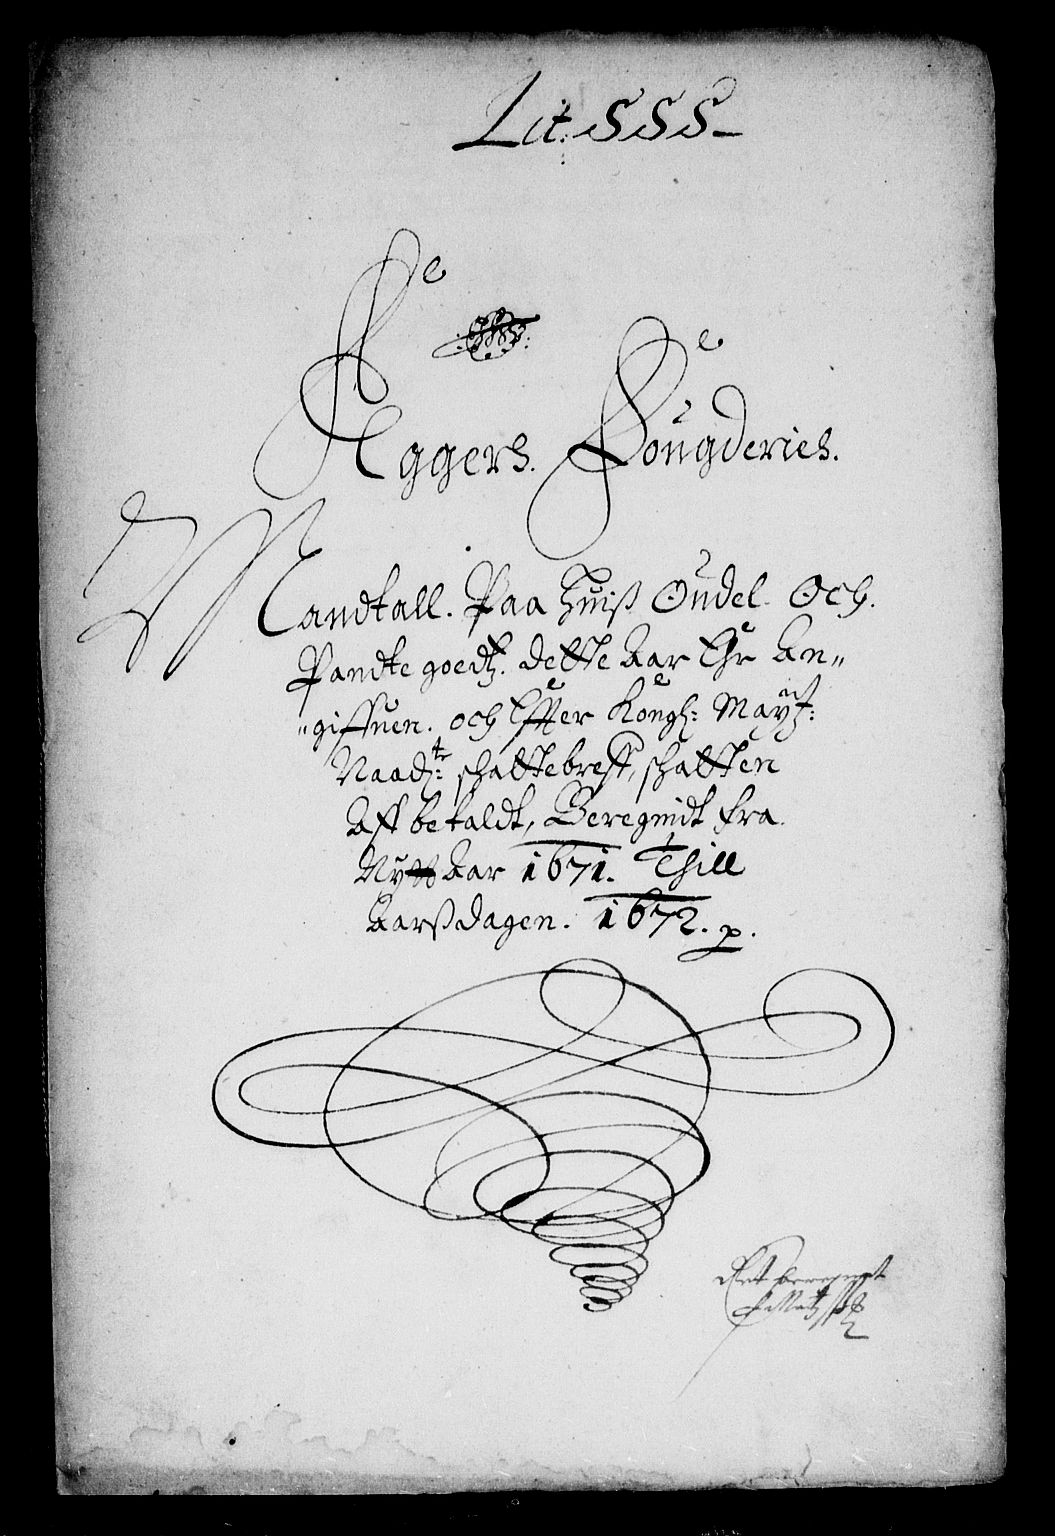 Lit: SSS
Aggers. Fougderies.
Mandtall. Paa Huiß Oudel. Och.
Pandte goedtz. dette Aar Ehr An„
„giffuen. och Effter Kongl: Mayt:
Naadr: schattebreff, schatten
Aff betaldt, Beregnidt fra.
Nytt Aar 1671. Thill
Aarßdagen. 1672. p.
Ret beregnet